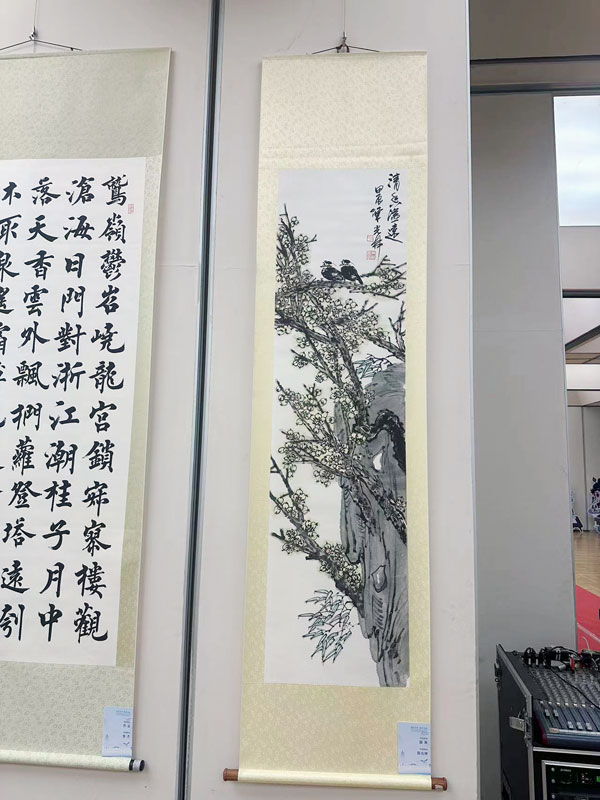 鷲嶺鬱岧嶢龍宮鎖寂寥樓觀
滄海日門對浙江潮桂子月中
落天香雲外飄捫蘿登塔遠刳
木取泉遙霜薄
清香溢遠
甲辰